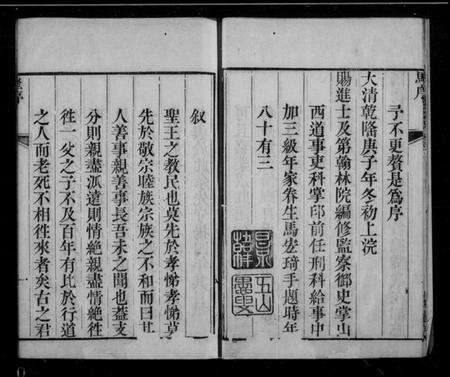 予不更贅是為序
大清乾隆庚子年冬初上浣
賜進士及第翰林院編修監察御史掌山
西道事吏科掌印前任刑科給事中
加三級年家眷生馬宏琦手題時年
八十有三
叙
聖王之教民也莫先於孝悌孝悌莫
先於敬宗睦族宗族之不和而曰其
人善事親善事長吾未之聞也蓋支
分則親盡派遠則情絶親盡情絶徃
徃一父之子不及百年有比於行道
之人而老死不相徃來者矣古之君